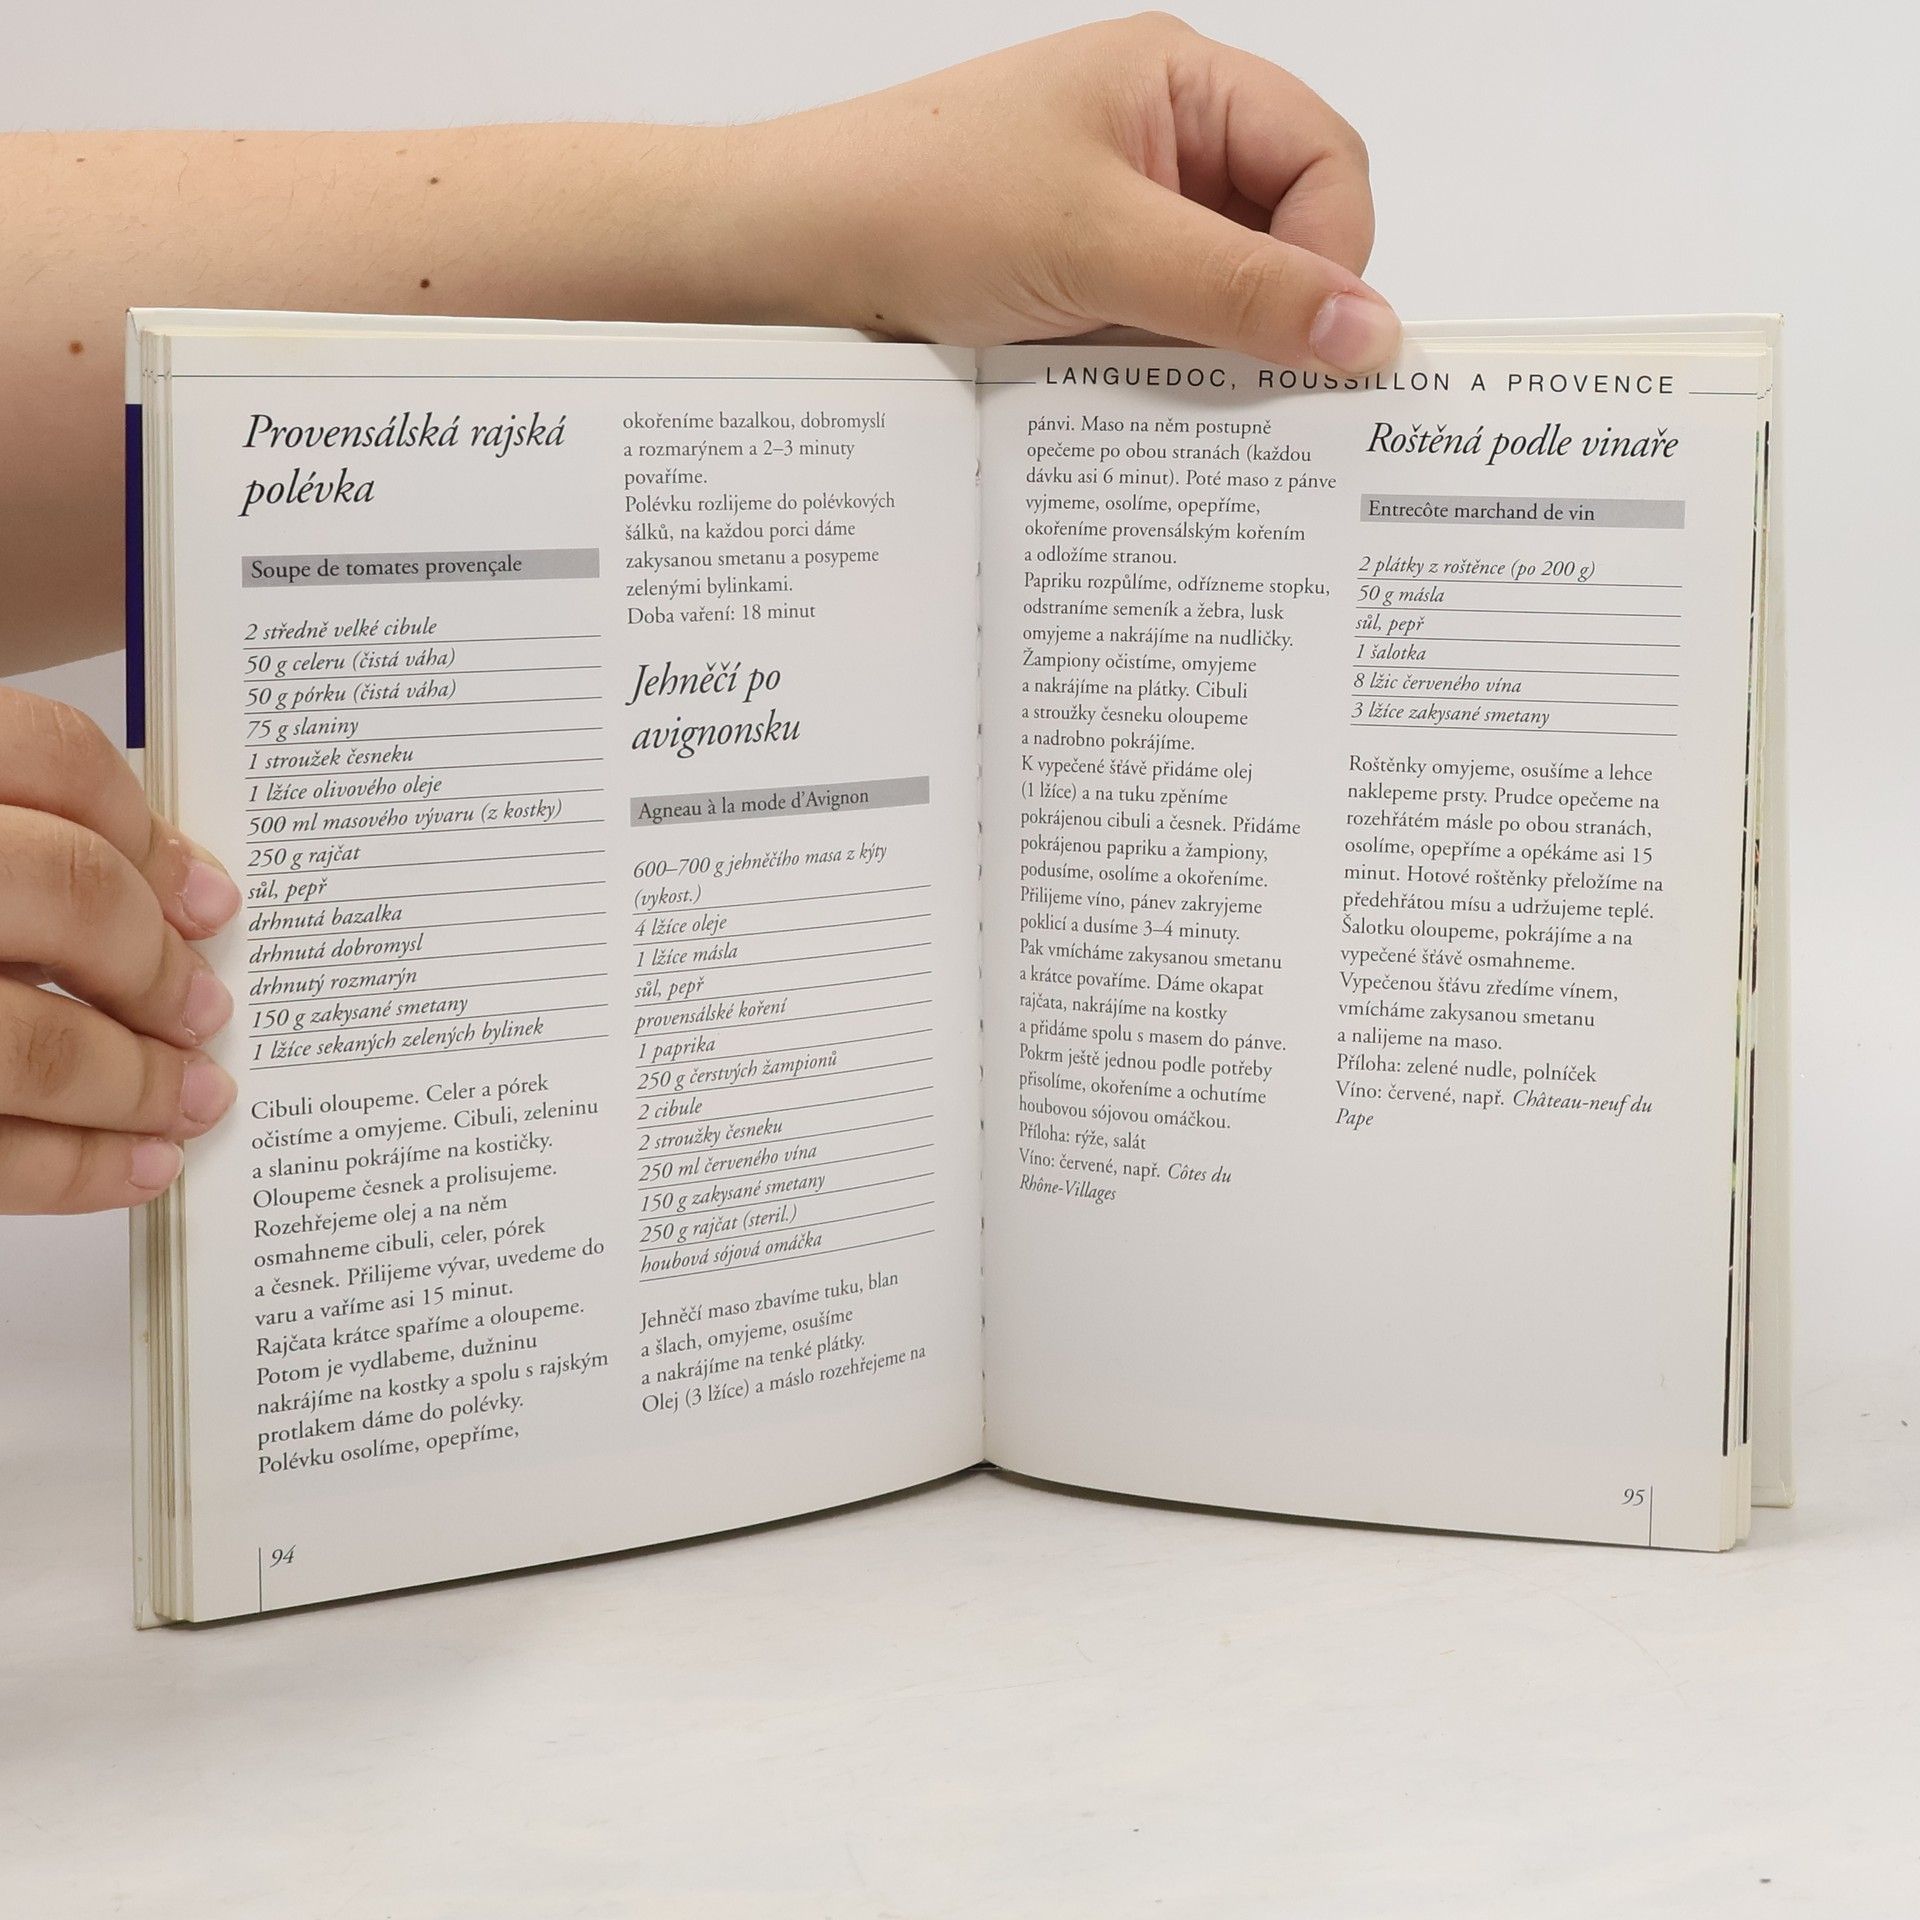 Provensálská rajská
polévka
Soupe de tomates provençale
2 středně velké cibule
50 g celeru (čistá váha)
50 g pórku (čistá váha)
75 g slaniny
1 stroužek česneku
1 lžíce olivového oleje
500 ml masového vývaru (z kostky)
250 g rajčat
sůl, pepř
drhnutá bazalka
drhnutá dobromysl
drhnutý rozmarýn
150 g zakysané smetany
1 lžíce sekaných zelených bylinek
Cibuli oloupeme. Celer a pórek
očistíme a omyjeme. Cibuli, zeleninu
a slaninu pokrájíme na kostičky.
Oloupeme česnek a prolisujeme.
Rozehřejeme olej a na něm
osmahneme cibuli, celer, pórek
a česnek. Přilijeme vývar, uvedeme do
varu a vaříme asi 15 minut.
Rajčata krátce spaříme a oloupeme.
Potom je vydlabeme, dužninu
nakrájíme na kostky a spolu s rajským
protlakem dáme do polévky.
Polévku osolíme, opepříme,
okořeníme bazalkou, dobromyslí
a rozmarýnem a 2–3 minuty
povaříme.
Polévku rozlijeme do polévkových
šálků, na každou porci dáme
zakysanou smetanu a posypeme
zelenými bylinkami.
Doba vaření: 18 minut
Jehněčí po
avignonsku
Agneau à la mode d'Avignon
600–700 g jehněčího masa z kýty
(vykost.)
4 lžíce oleje
1 lžíce másla
sůl, pepř
provensálské koření
1 paprika
250 g čerstvých žampionů
2 cibule
2 stroužky česneku
250 ml červeného vína
150 g zakysané smetany
250 g rajčat (steril.)
houbová sójová omáčka
Jehněčí maso zbavíme tuku, blan
a šlach, omyjeme, osušíme
a nakrájíme na tenké plátky.
Olej (3 lžíce) a máslo rozehřejeme na
94
LANGUEDOC, ROUSSILLON A PROVENCE
pánvi. Maso na něm postupně
opečeme po obou stranách (každou
dávku asi 6 minut). Poté maso z pánve
vyjmeme, osolíme, opepříme,
okořeníme provensálským kořením
a odložíme stranou.
Papriku rozpůlíme, odřízneme stopku,
odstraníme semeník a žebra, lusk
omyjeme a nakrájíme na nudličky.
Žampiony očistíme, omyjeme
a nakrájíme na plátky. Cibuli
a stroužky česneku oloupeme
a nadrobno pokrájíme.
K vypečené šťávě přidáme olej
(1 lžíce) a na tuku zpěníme
pokrájenou cibuli a česnek. Přidáme
pokrájenou papriku a žampiony,
podusíme, osolíme a okořeníme.
Přilijeme víno, pánev zakryjeme
poklicí a dusíme 3–4 minuty.
Pak vmícháme zakysanou smetanu
a krátce povaříme. Dáme okapat
rajčata, nakrájíme na kostky
a přidáme spolu s masem do pánve.
Pokrm ještě jednou podle potřeby
přisolíme, okořeníme a ochutíme
houbovou sójovou omáčkou.
Příloha: rýže, salát
Víno: červené, např. Côtes du
Rhône-Villages
Roštěná podle vinaře
Entrecôte marchand de vin
2 plátky z roštěnce (po 200 g)
50 g másla
sůl, pepř
1 šalotka
8 lžic červeného vína
3 lžíce zakysané smetany
Roštěnky omyjeme, osušíme a lehce
naklepeme prsty. Prudce opečeme na
rozehřátém másle po obou stranách,
osolíme, opepříme a opékáme asi 15
minut. Hotové roštěnky přeložíme na
předehřátou mísu a udržujeme teplé.
Šalotku oloupeme, pokrájíme a na
vypečené šťávě osmahneme.
Vypečenou šťávu zředíme vínem,
vmícháme zakysanou smetanu
a nalijeme na maso.
Příloha: zelené nudle, polníček
Víno: červené, např. Château-neuf du
Pape
95